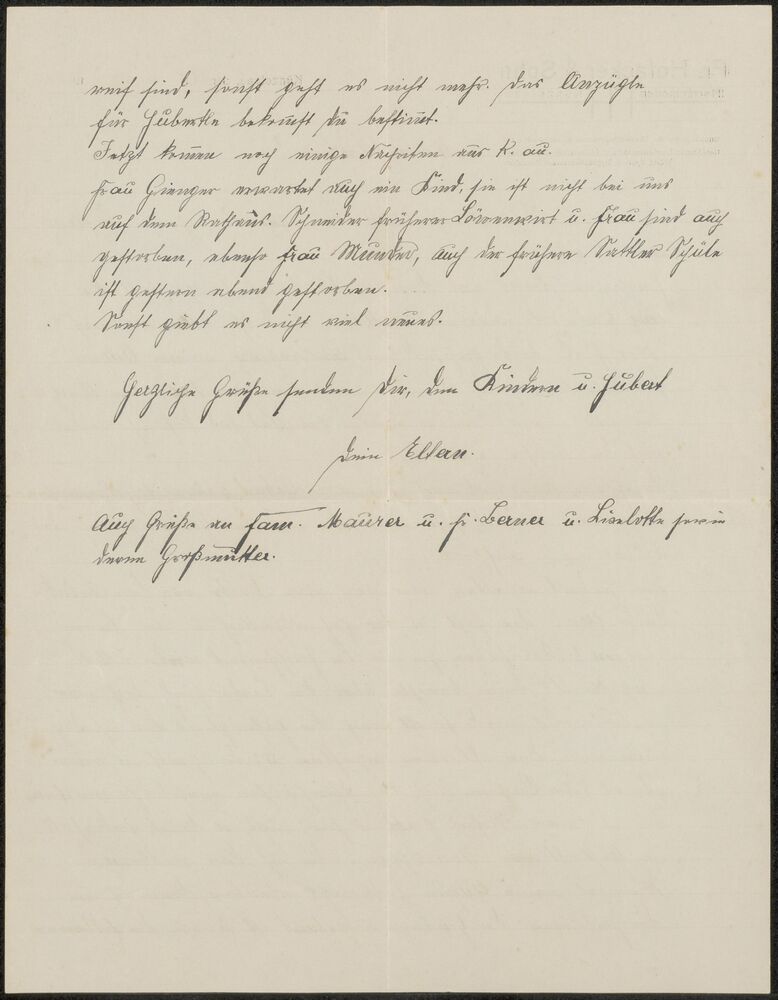 reif sind, sonst geht es nicht mehr. Das Anzügle
für Hubertle bekommst Du bestimmt.
Jetzt kommen noch einige Nachriten aus K. au.
Frau Gienger erwartet auch ein Kind, sie ist nicht bei uns
auf dem Rathaus. Schneider früherer Löwenwirt u. Frau sind auch
gestorben, ebenso Frau Munder, auch der frühere Sattler Schüle
ist gestern abend gestorben.
Sonst giebt es nicht viel neues.
Herzliche Grüße senden Dir, den Kindern u. Hubert
Dein Eltern.
Auch Grüße an Fam. Maurer u. Fr. Berner u. Liselotte sowie
deren Großmutter.